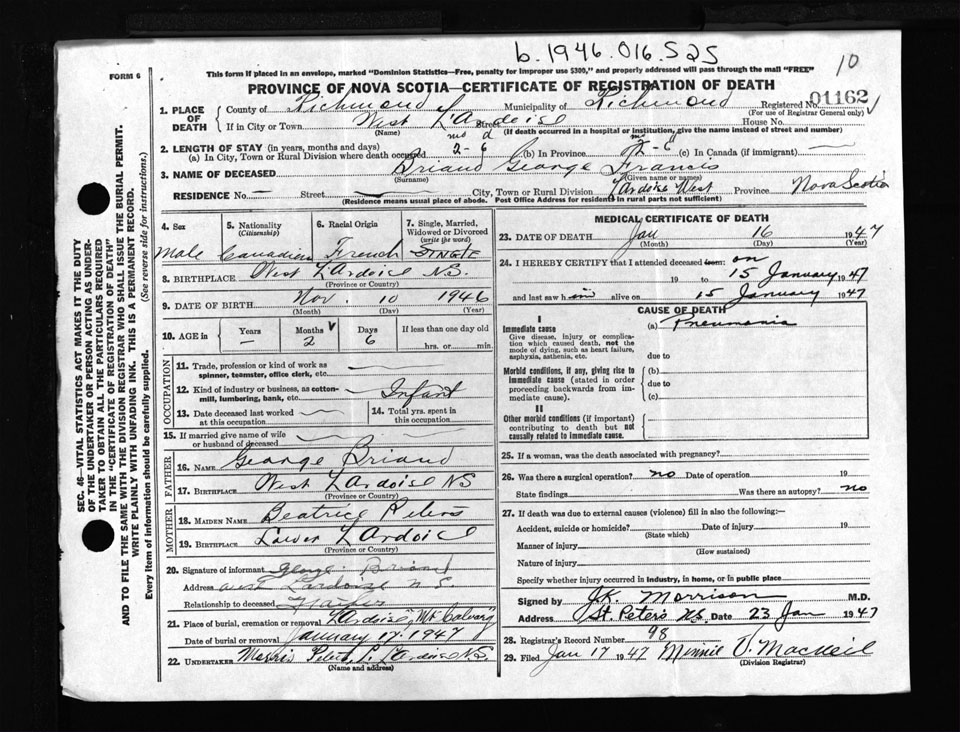 b. 1946.016.525
10
FORM 6
This form if placed in an envelope, marked "Dominion Statistics—Free, penalty for improper use $300," and properly addressed will pass through the mail "FREE"
PROVINCE OF NOVA SCOTIA—CERTIFICATE OF REGISTRATION OF DEATH
1. PLACE OF DEATH
County of Richmond Municipality of Richmond Registered No. 01162
(For use of Registrar General only)
If in City or Town West L'Ardoise Street House No.
(Name) (If death occurred in a hospital or institution, give the name instead of street and number)
2. LENGTH OF STAY (in years, months and days)
(a) In City, Town or Rural Division where death occurred 2-6 (b) In Province 2-6 (c) In Canada (if immigrant)
3. NAME OF DECEASED Briand George Francis
(Surname) (Given name or names)
RESIDENCE No. — Street — City, Town or Rural Division L'Ardoise West Province Nova Scotia
(Residence means usual place of abode. Post Office Address for residents in rural parts not sufficient)
4. Sex
Male
5. Nationality (Citizenship)
Canadian
6. Racial Origin
French
7. Single, Married, Widowed or Divorced (write the word)
SINGLE
8. BIRTHPLACE West L'Ardoise N.S.
(Province or Country)
9. DATE OF BIRTH Nov. 10 1946
(Month) (Day) (Year)
10. AGE in Years Months Days If less than one day old
— 2 6 hrs. or min.
OCCUPATION
11. Trade, profession or kind of work as spinner, teamster, office clerk, etc.
12. Kind of industry or business, as cotton-mill, lumbering, bank, etc. Infant
13. Date deceased last worked at this occupation
14. Total yrs. spent in this occupation
15. If married give name of wife or husband of deceased
FATHER
16. NAME George Briand
17. BIRTHPLACE West L'Ardoise NS
(Province or Country)
MOTHER
18. MAIDEN NAME Beatrice Peters
19. BIRTHPLACE Lower L'Ardoise
(Province or Country)
20. Signature of informant George Briand
Address West Lardoise N.S.
Relationship to deceased Father
21. Place of burial, cremation or removal L'Ardoise "Mt Calvary"
Date of burial or removal January 17. 1947
22. UNDERTAKER Peters L'Ardoise N.S.
(Name and address)
MEDICAL CERTIFICATE OF DEATH
23. DATE OF DEATH Jan 16 1947
(Month) (Day) (Year)
24. I HEREBY CERTIFY that I attended deceased from: on
19 to 15 January 1947
and last saw him alive on 15 January 1947
CAUSE OF DEATH
I
Immediate cause (a) Pneumonia
Give disease, injury or complication which caused death, not the mode of dying, such as heart failure, asphyxia, asthenia, etc.
due to
Morbid conditions, if any, giving rise to immediate cause (stated in order proceeding backwards from immediate cause).
(b)
due to
(c)
II
Other morbid conditions (if important) contributing to death but not causally related to immediate cause.
25. If a woman, was the death associated with pregnancy?
26. Was there a surgical operation? no Date of operation 19
State findings Was there an autopsy? no
27. If death was due to external causes (violence) fill in also the following:—
Accident, suicide or homicide? Date of injury 19
(State which)
Manner of injury
(How sustained)
Nature of injury
Specify whether injury occurred in industry, in home, or in public place
Signed by J.K. Morrison M.D.
Address St. Peters N.S. Date 23 Jan 1947
28. Registrar's Record Number 98
29. Filed Jan 17 1947 Minnie D. MacNeil
(Division Registrar)
SEC. 46—VITAL STATISTICS ACT MAKES IT THE DUTY
OF THE UNDERTAKER OR PERSON ACTING AS UNDER-
TAKER TO OBTAIN ALL THE PARTICULARS REQUIRED
IN THE "CERTIFICATE OF REGISTRATION OF DEATH"
AND TO FILE THE SAME WITH THE DIVISION REGISTRAR WHO SHALL ISSUE THE BURIAL PERMIT.
WRITE PLAINLY WITH UNFADING INK. THIS IS A PERMANENT RECORD.
Every item of information should be carefully supplied. (See reverse side for instructions.)